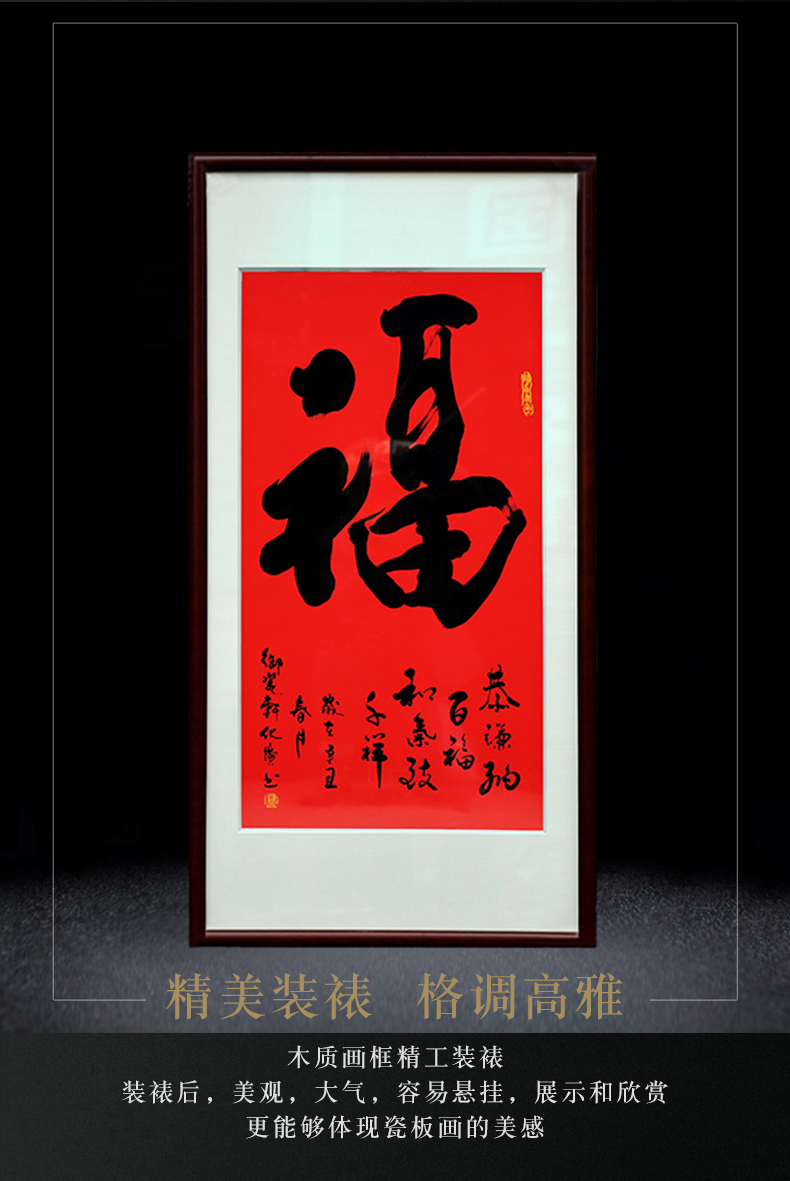 福
恭谦纳
百福
和气致
千祥
岁在辛丑
春月
御瓷轩化滨书
精美装裱 格调高雅
木质画框精工装裱
装裱后，美观，大气，容易悬挂，展示和欣赏
更能够体现瓷板画的美感